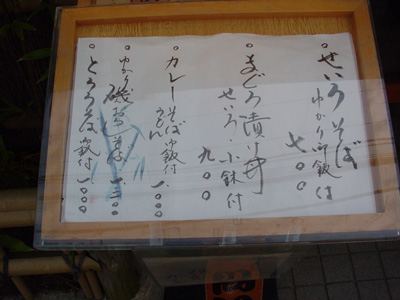 せいろそば
ゆかり御飯は
七〇〇
まぐろ漬け丼
せいろ・小鉢付
九〇〇
カレーそば
うどん
御飯付
一、〇〇〇
ゆかり
磯おろしそば
一、三〇〇
とろろそば
御飯付
一、〇〇〇